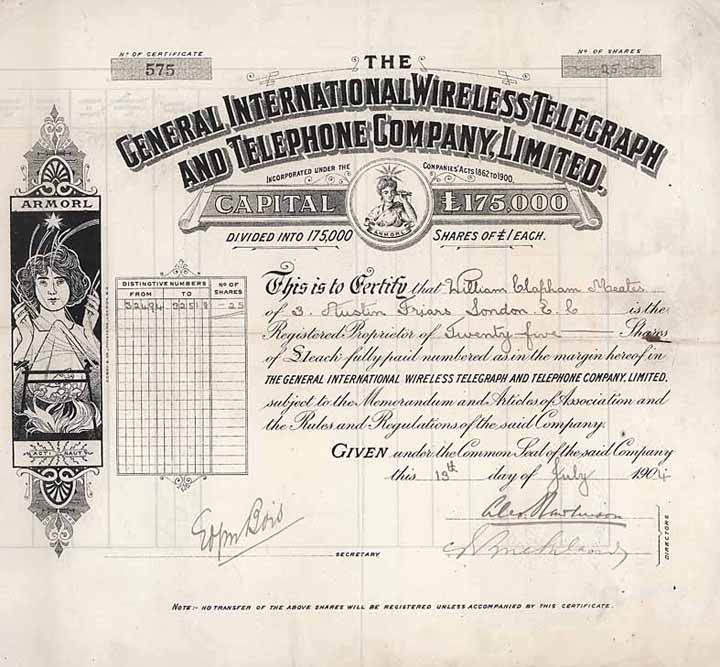 No OF CERTIFICATE
575
No OF SHARES
25
THE
GENERAL INTERNATIONAL WIRELESS TELEGRAPH
AND TELEPHONE COMPANY, LIMITED.
INCORPORATED UNDER THE COMPANIES' ACTS 1862 TO 1900.
CAPITAL £175,000
ARMORL
DIVIDED INTO 175,000 SHARES OF £1 EACH.
ARMORL
DISTINCTIVE NUMBERS No OF
FROM TO SHARES
32494 32518 25
This is to Certify that William Clapham Meates
of 3. Austin Friars London. E. C is the
Registered Proprietor of Twenty five Shares
of £1 each fully paid numbered as in the margin hereof in
THE GENERAL INTERNATIONAL WIRELESS TELEGRAPH AND TELEPHONE COMPANY, LIMITED.
subject to the Memorandum and Articles of Association and
the Rules and Regulations of the said Company.
GIVEN under the Common Seal of the said Company
this 19th day of July 1904
SECRETARY
DIRECTORS
NOTE:- NO TRANSFER OF THE ABOVE SHARES WILL BE REGISTERED UNLESS ACCOMPANIED BY THIS CERTIFICATE.